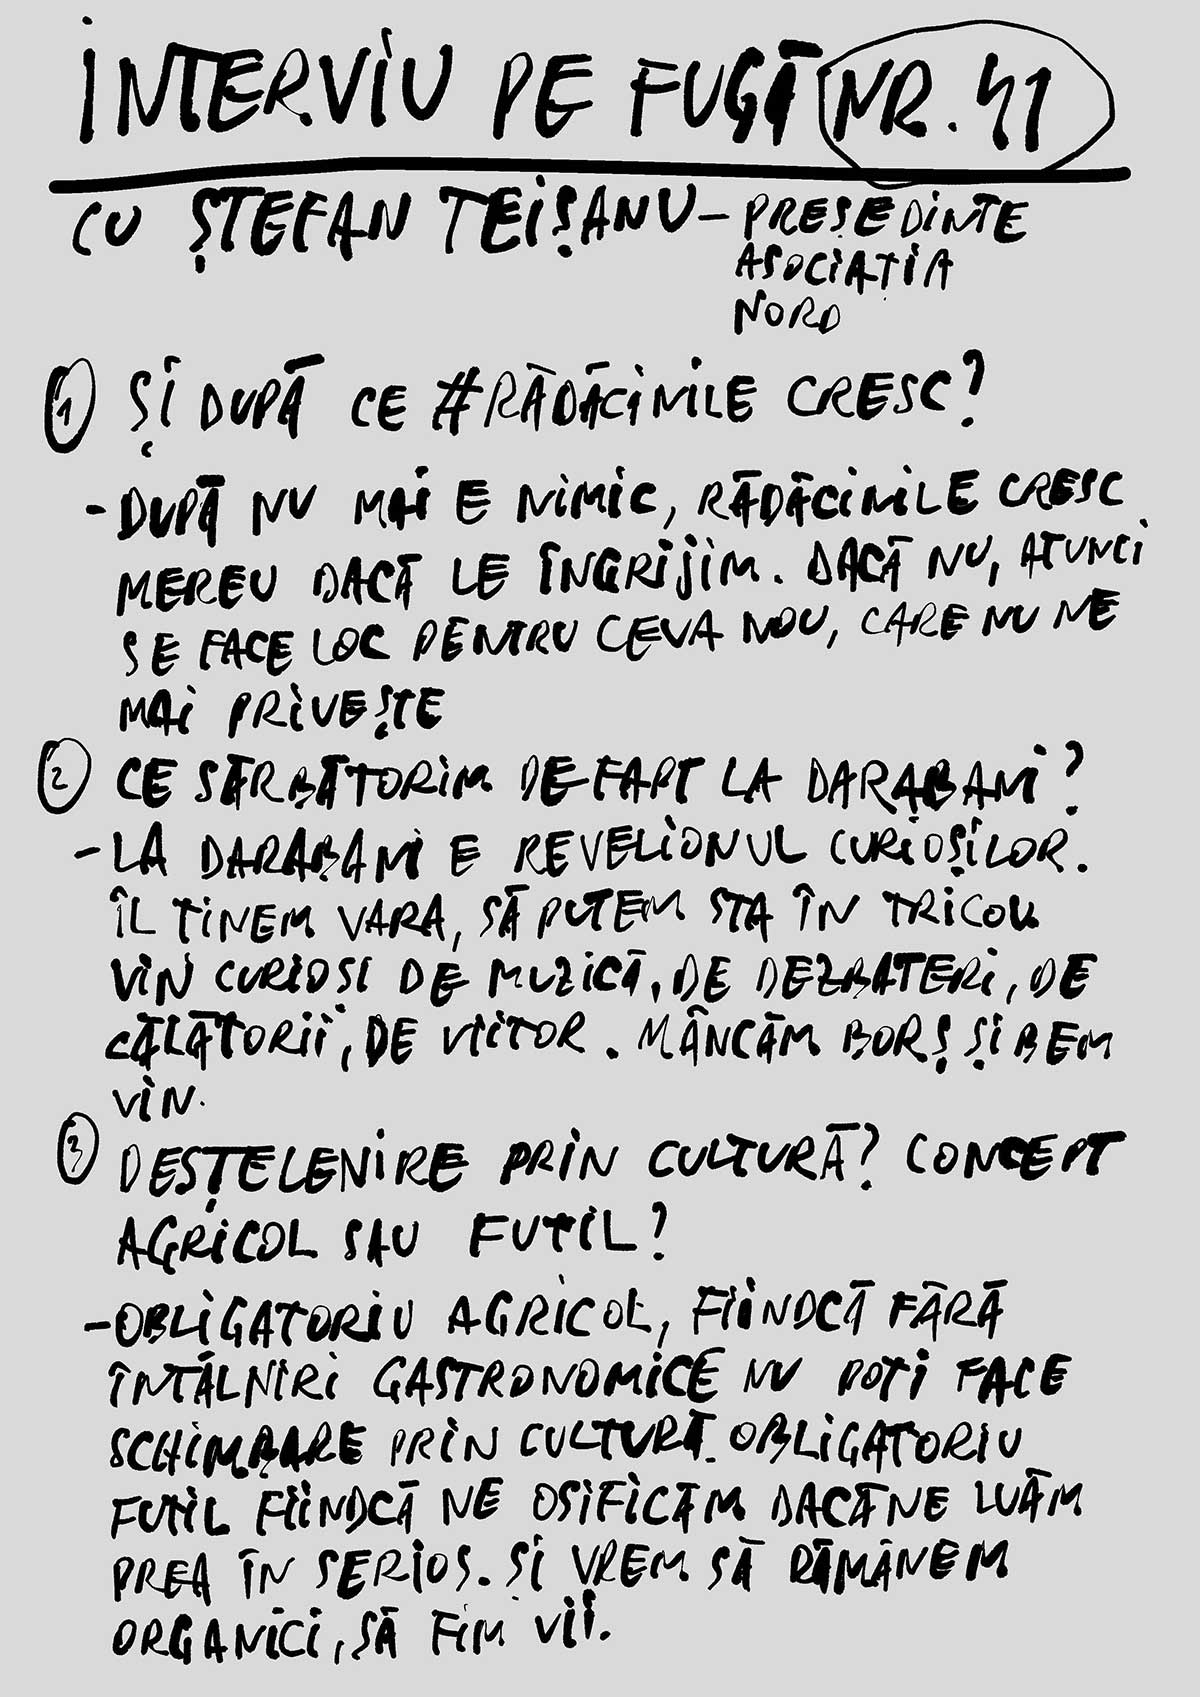 INTERVIU PE FUGĂ NR. 41
CU ȘTEFAN TEIȘANU – PREȘEDINTE
ASOCIAȚIA
NORD
1 ȘI DUPĂ CE #RĂDĂCINILE CRESC?
- DUPĂ NU MAI E NIMIC, RĂDĂCINILE CRESC
MEREU DACĂ LE ÎNGRIJIM. DACĂ NU, ATUNCI
SE FACE LOC PENTRU CEVA NOU, CARE NU NE
MAI PRIVEȘTE
2 CE SĂRBĂTORIM DE FAPT LA DARABANI?
- LA DARABANI E REVELIONUL CURIOȘILOR.
ÎL ȚINEM VARA, SĂ PUTEM STA ÎN TRICOU.
VIN CURIOSI DE MUZICĂ, DE DEZBATERI, DE
CĂLĂTORII, DE VIITOR. MÂNCĂM BORȘ ȘI BEM
VIN.
3 DESȚELENIRE PRIN CULTURĂ? CONCEPT
AGRICOL SAU FUTIL?
- OBLIGATORIU AGRICOL, FIINDCĂ FĂRĂ
ÎNTÂLNIRI GASTRONOMICE NU POȚI FACE
SCHIMBARE PRIN CULTURĂ. OBLIGATORIU
FUTIL FIINDCĂ NE OSIFICĂM DACĂ NE LUĂM
PREA ÎN SERIOS. ȘI VREM SĂ RĂMÂNEM
ORGANICI, SĂ FIM VII.